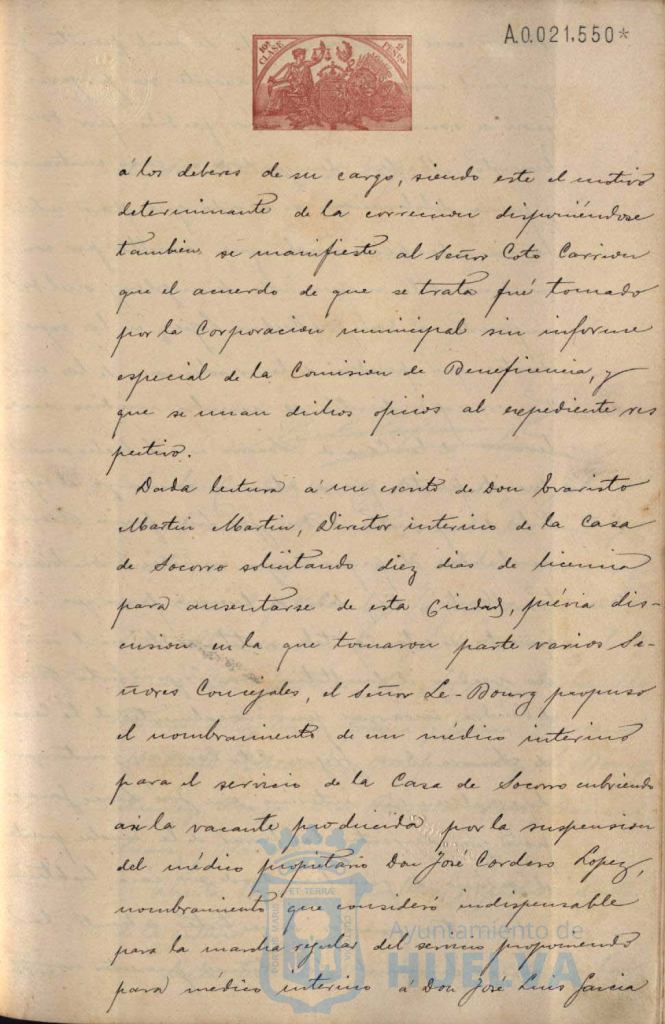 A.0.021.550*
10ª CLASE 2 PESETAS
á los deberes de su cargo, siendo este el motivo
determinante de la correccion disponiéndose
tambien se manifieste al Señor Coto Carrion
que el acuerdo de que se trata fué tomado
por la Corporacion municipal sin informe
especial de la Comision de Beneficencia, y
que se unan dichos oficios al expediente res
pectivo.
Dada lectura á un escrito de Don Evaristo
Martin Martin, Director interino de la Casa
de Socorro solicitando diez dias de licencia
para ausentarse de esta Ciudad, prévia dis-
cusion en la que tomaron parte varios Se-
ñores Concejales, el Señor Le-Bourg propuso
el nombramiento de un médico interino
para el servicio de la Casa de Socorro cubriendo
asi la vacante producida por la suspension
del médico propietario Don José Cordero Lopez,
nombramiento que consideró indispensable
para la marcha regular del servicio proponiendo
para médico interino á Don José Luis Garcia
ET TERRÆ
PORTUS MARIS
Ayuntamiento de
HUELVA